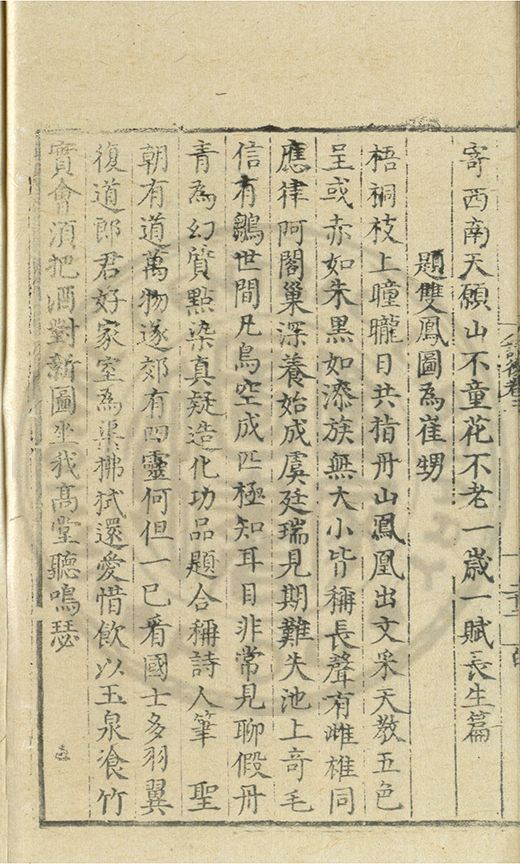 寄西南天願山不童花不老一歲一賦長生篇
題雙鳳圖為崔甥
梧桐枝上曈曨日共指丹山鳳凰出文采天教五色
呈或赤如朱黑如漆族無大小皆稱長聲有雌雄同
應律阿閣巢深養始成虞廷瑞見期難失池上奇毛
信有鶵世間凡鳥空成匹極知耳目非常見聊假丹
青為幻質點染真疑造化功品題合稱詩人筆 聖
朝有道萬物遂郊有四靈何但一已看國士多羽翼
復道郎君好家室為渠拂拭還愛惜飲以玉泉飡竹
實會須把酒對新圖坐我高堂聽鳴瑟